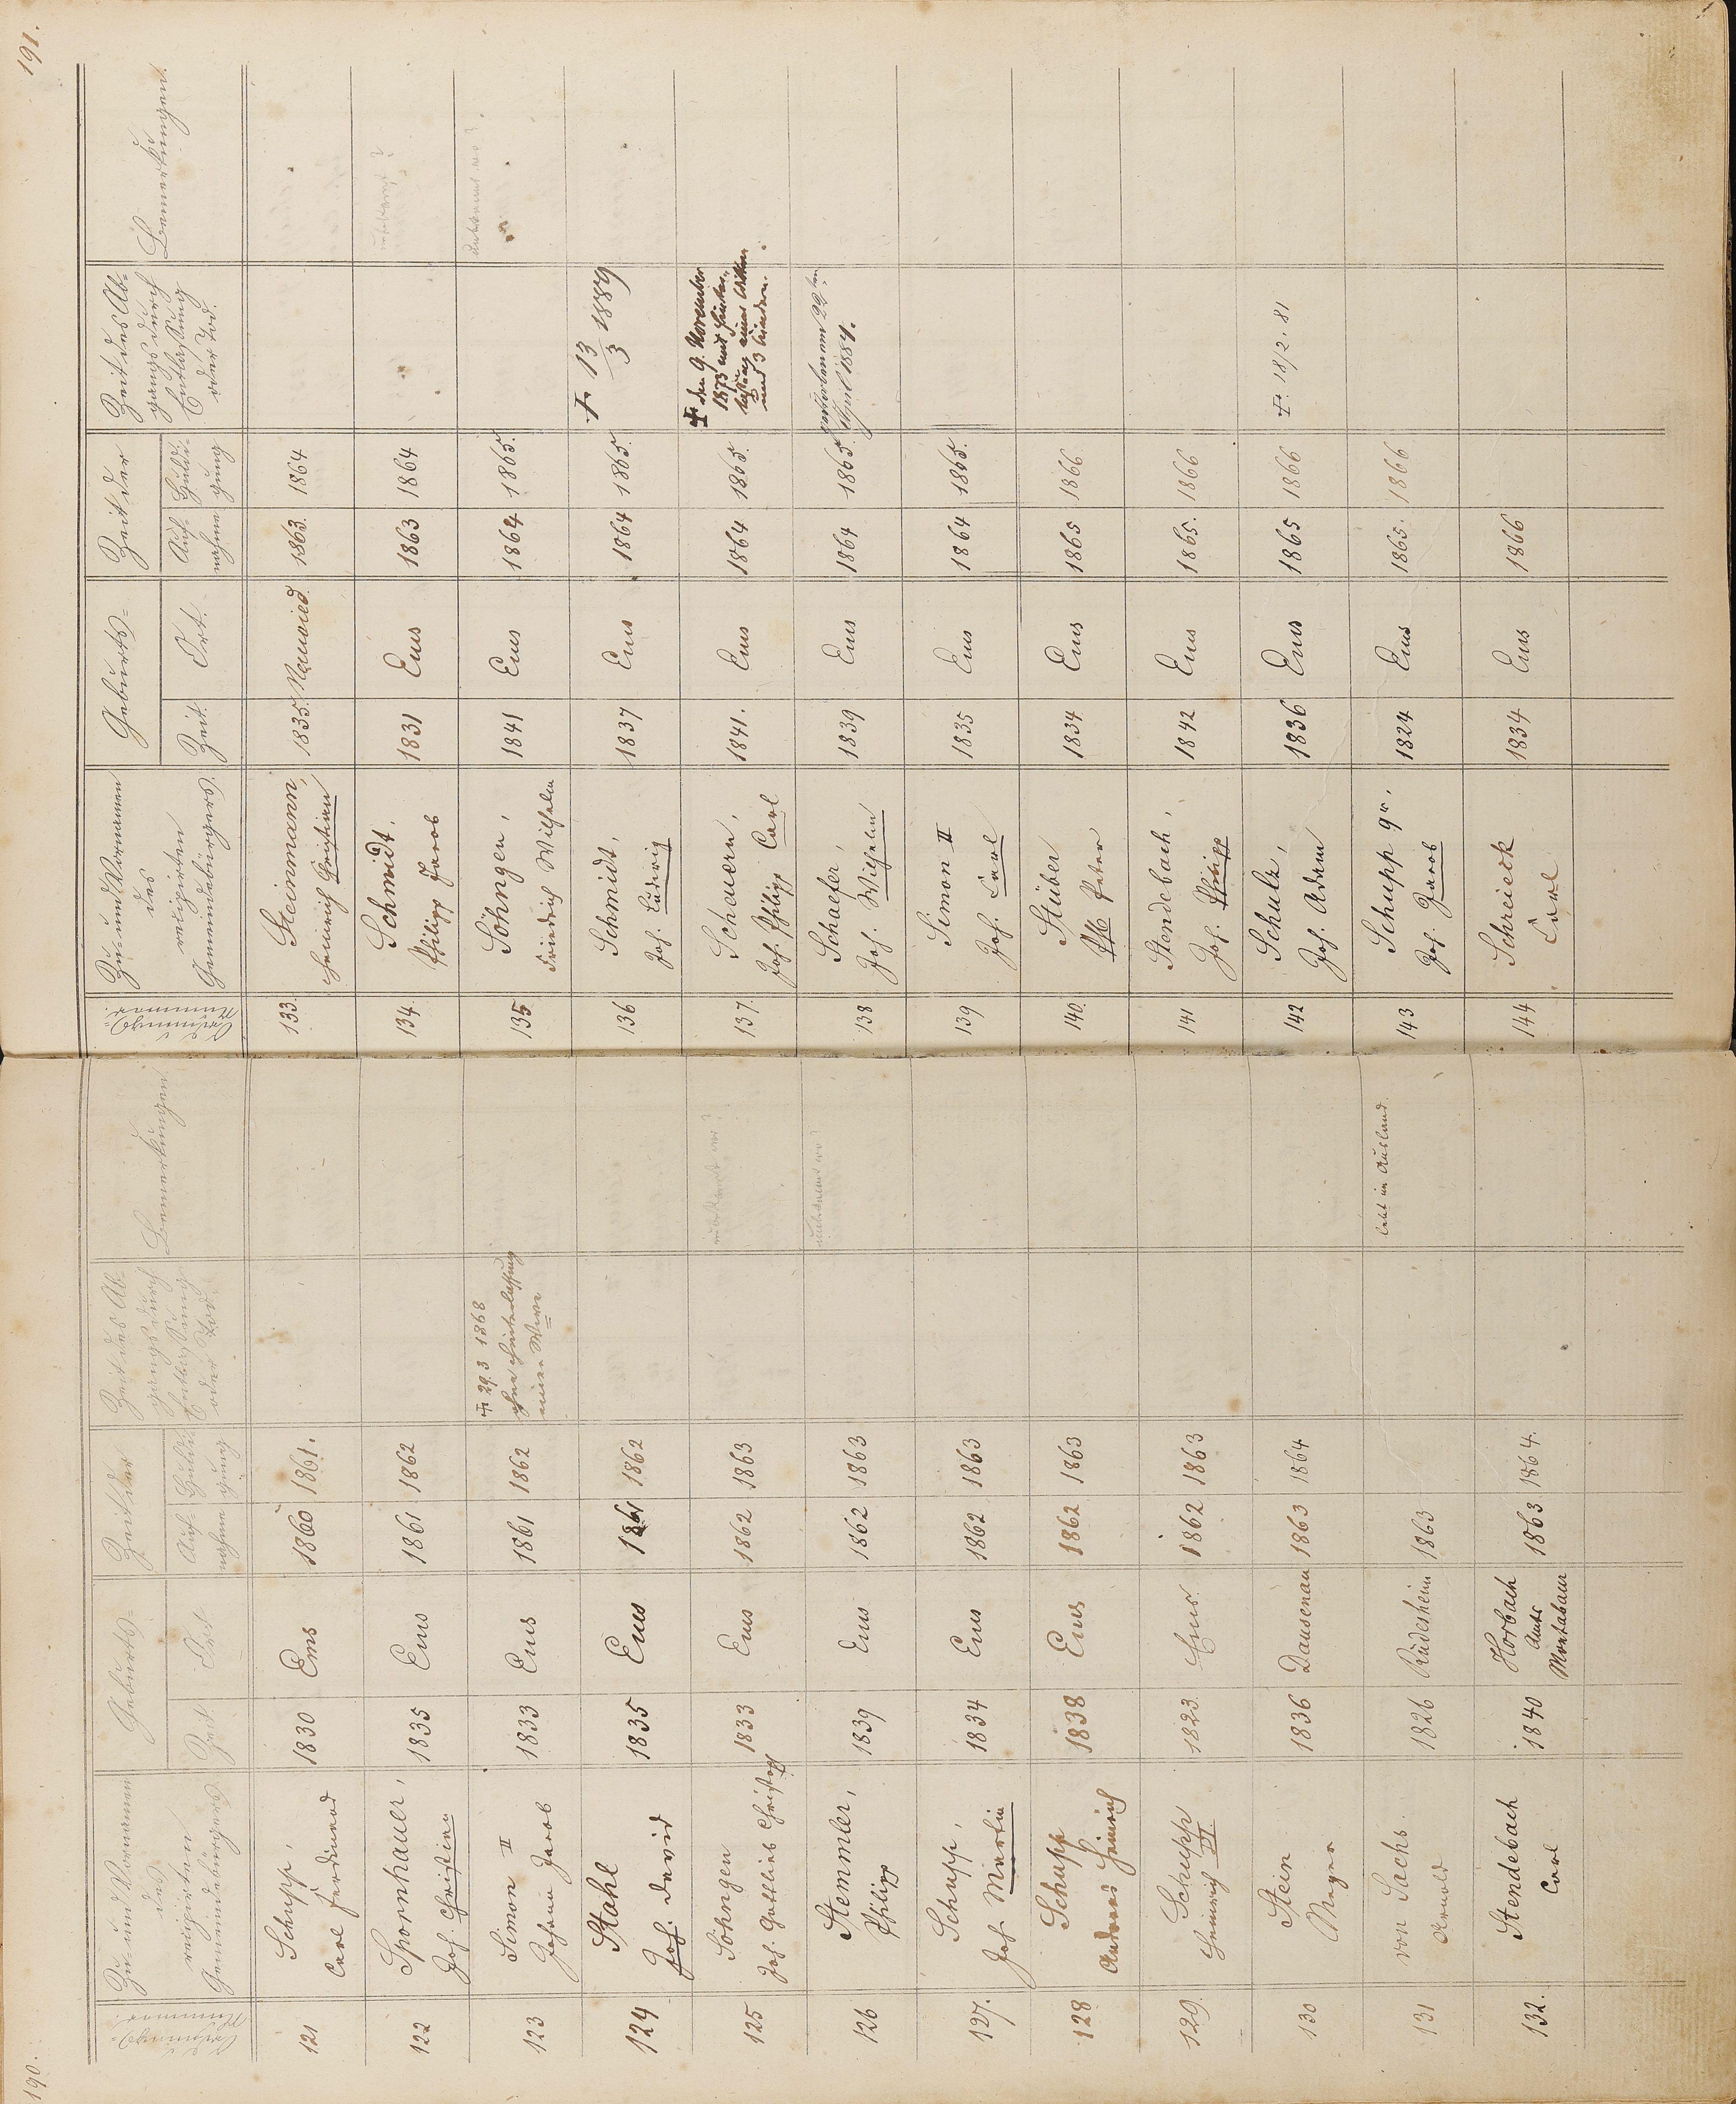 190.
Ordnungs-
Nummer.
Zu- und Vornamen
des
recipirten
Gemeindebürgers
Geburts-
Zeit
Ort
Zeit der
Auf-
nahme
Huldi-
gung
Zeit des Ab-
gangs durch
Entlassung
oder Tod.
Bemerkungen
121 Schupp, 1830 Ems 1860 1861.
Carl Ferdinand
122 Spornhauer, 1835 Ems 1861 1862
Joh. Christian
123 Simon II 1833 Ems 1861 1862 † 29. 3 1868
Johann Jacob ohne Hinterlassung
einer Wwe
124 Stahl 1835 Ems 1861 1862
Joh. David
125 Söhngen 1833 Ems 1862 1863
Joh. Gottlieb Christoph
126 Stemmler, 1839 Ems 1862 1863
Philipp
127. Schupp, 1834 Ems 1862 1863
Joh. Martin
128 Schupp 1838 Ems 1862 1863
Andreas Heinrich
129. Schupp 1823. Ems. 1862 1863
Heinrich VI.
130 Stein 1836 Dausenau 1863 1864
Mayer
131 von Sachs. 1826 Rüdesheim 1863 lebt im Ausland.
Arnold
132. Stendebach 1840 Horbach 1863. 1864.
Carl Amts
Montabaur
191.
Ordnungs-
Nummer.
Zu- und Vornamen
des
recipirten
Gemeindebürgers.
Geburts-
Zeit.
Ort.
Zeit der
Auf-
nahme
Huldi-
gung
Zeit des Ab-
gangs durch
Entlassung
oder Tod.
Bemerkungen.
133. Steinmann, 1835. Neuwied. 1863. 1864
Heinrich Christian
134. Schmidt. 1831 Ems 1863 1864 unbekannt?
Philipp Jacob
135 Söhngen, 1841 Ems 1864 1865. unbekannt wo?
Friedrich Wilhelm
136 Schmidt, 1837 Ems 1864 1865. † 13/3 1889
Joh. Ludwig
137. Scheuern, 1841. Ems 1864 1865. † den 9. November
Joh. Philipp Carl 1873 mit Hinter-
lassung einer Wittwe
und 3 Kindern.
138 Schaefer, 1839 Ems 1864 1865. gestorben am 22ten
Joh. Wilhelm April 1884.
139 Simon II 1835 Ems 1864 1865.
Joh. Carl
140. Stüber 1834 Ems 1865 1866
Peter
141 Stendebach, 1842 Ems 1865. 1866
Joh. Philipp
142 Schulz, 1836 Ems 1865 1866 †. 18/2. 81
Joh. Adam
143 Schupp 9r. 1824 Ems 1865. 1866
Joh. Jacob
144 Schrieck 1834 Ems 1866
Carl